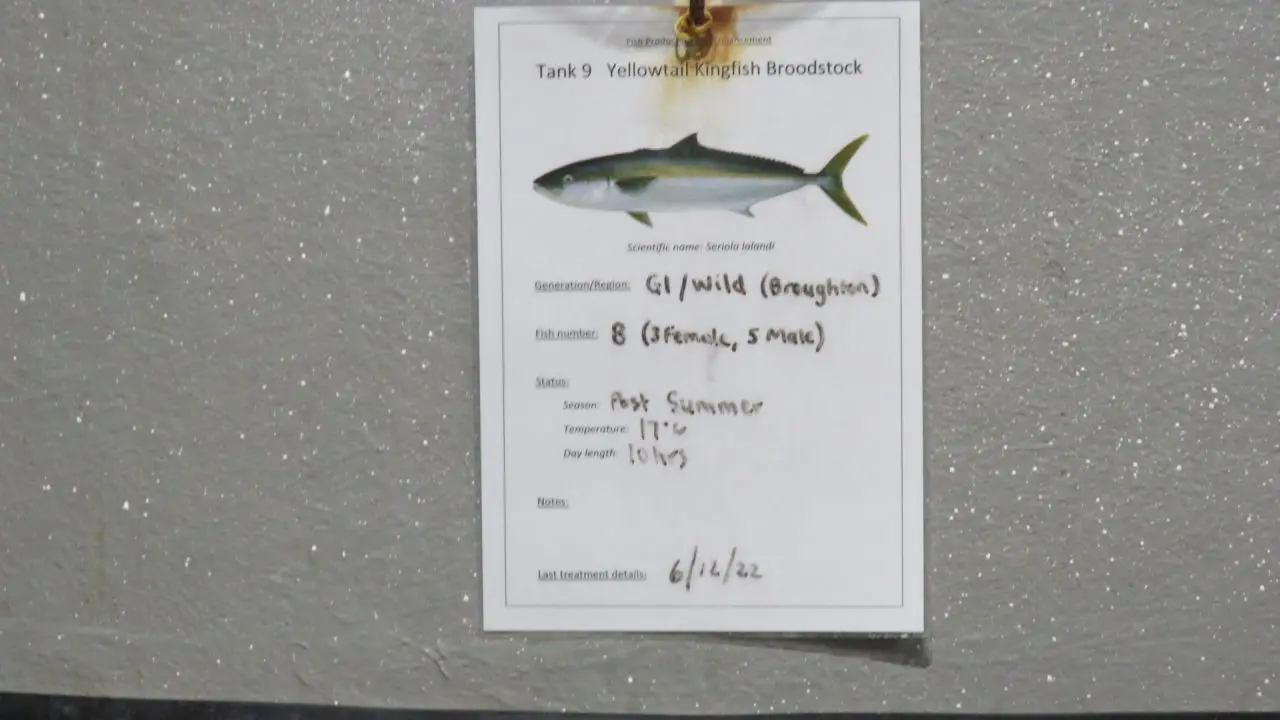 Fish
Tank 9 Yellowtail Kingfish Broodstock
Scientific name: Seriola lalandi
Generation/Region: G1/Wild (Broughton)
Fish number: 8 (3 Female, 5 Male)
Status:
Season: Post Summer
Temperature: 17°C
Day length: 10 hrs
Notes:
Last treatment details: 6/12/22